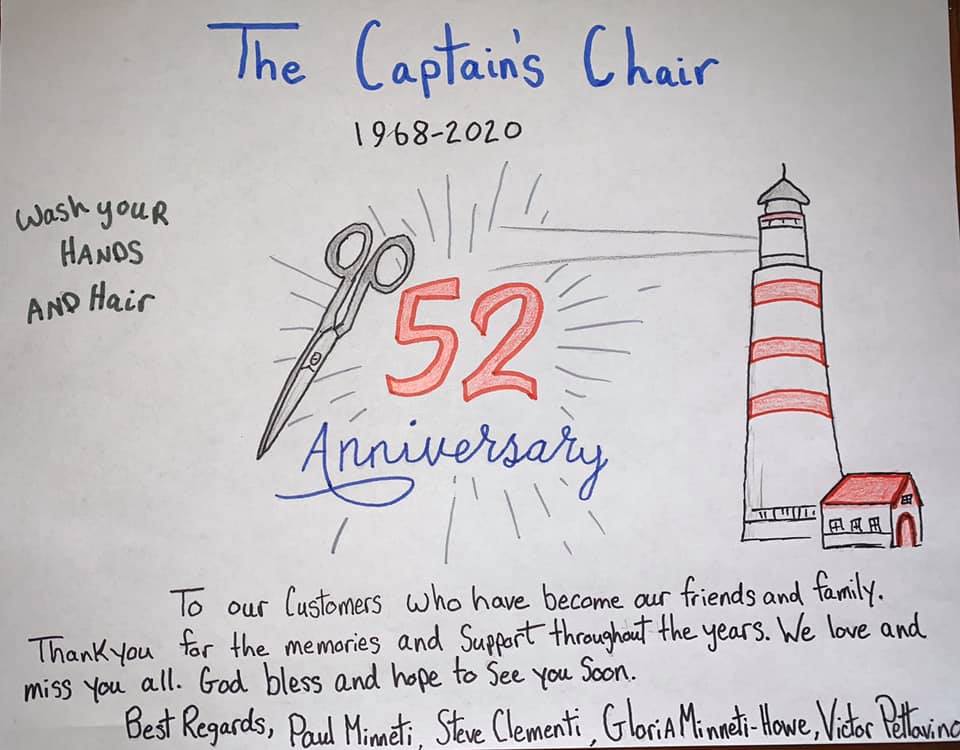 The Captain's Chair
1968-2020
Wash your
HANDS
AND Hair
52
Anniversary
To our Customers who have become our friends and family.
Thank you for the memories and Support throughout the years. We love and
miss you all. God bless and hope to See you Soon.
Best Regards, Paul Minneti, Steve Clementi, Gloria Minneti-Howe, Victor Pettavino